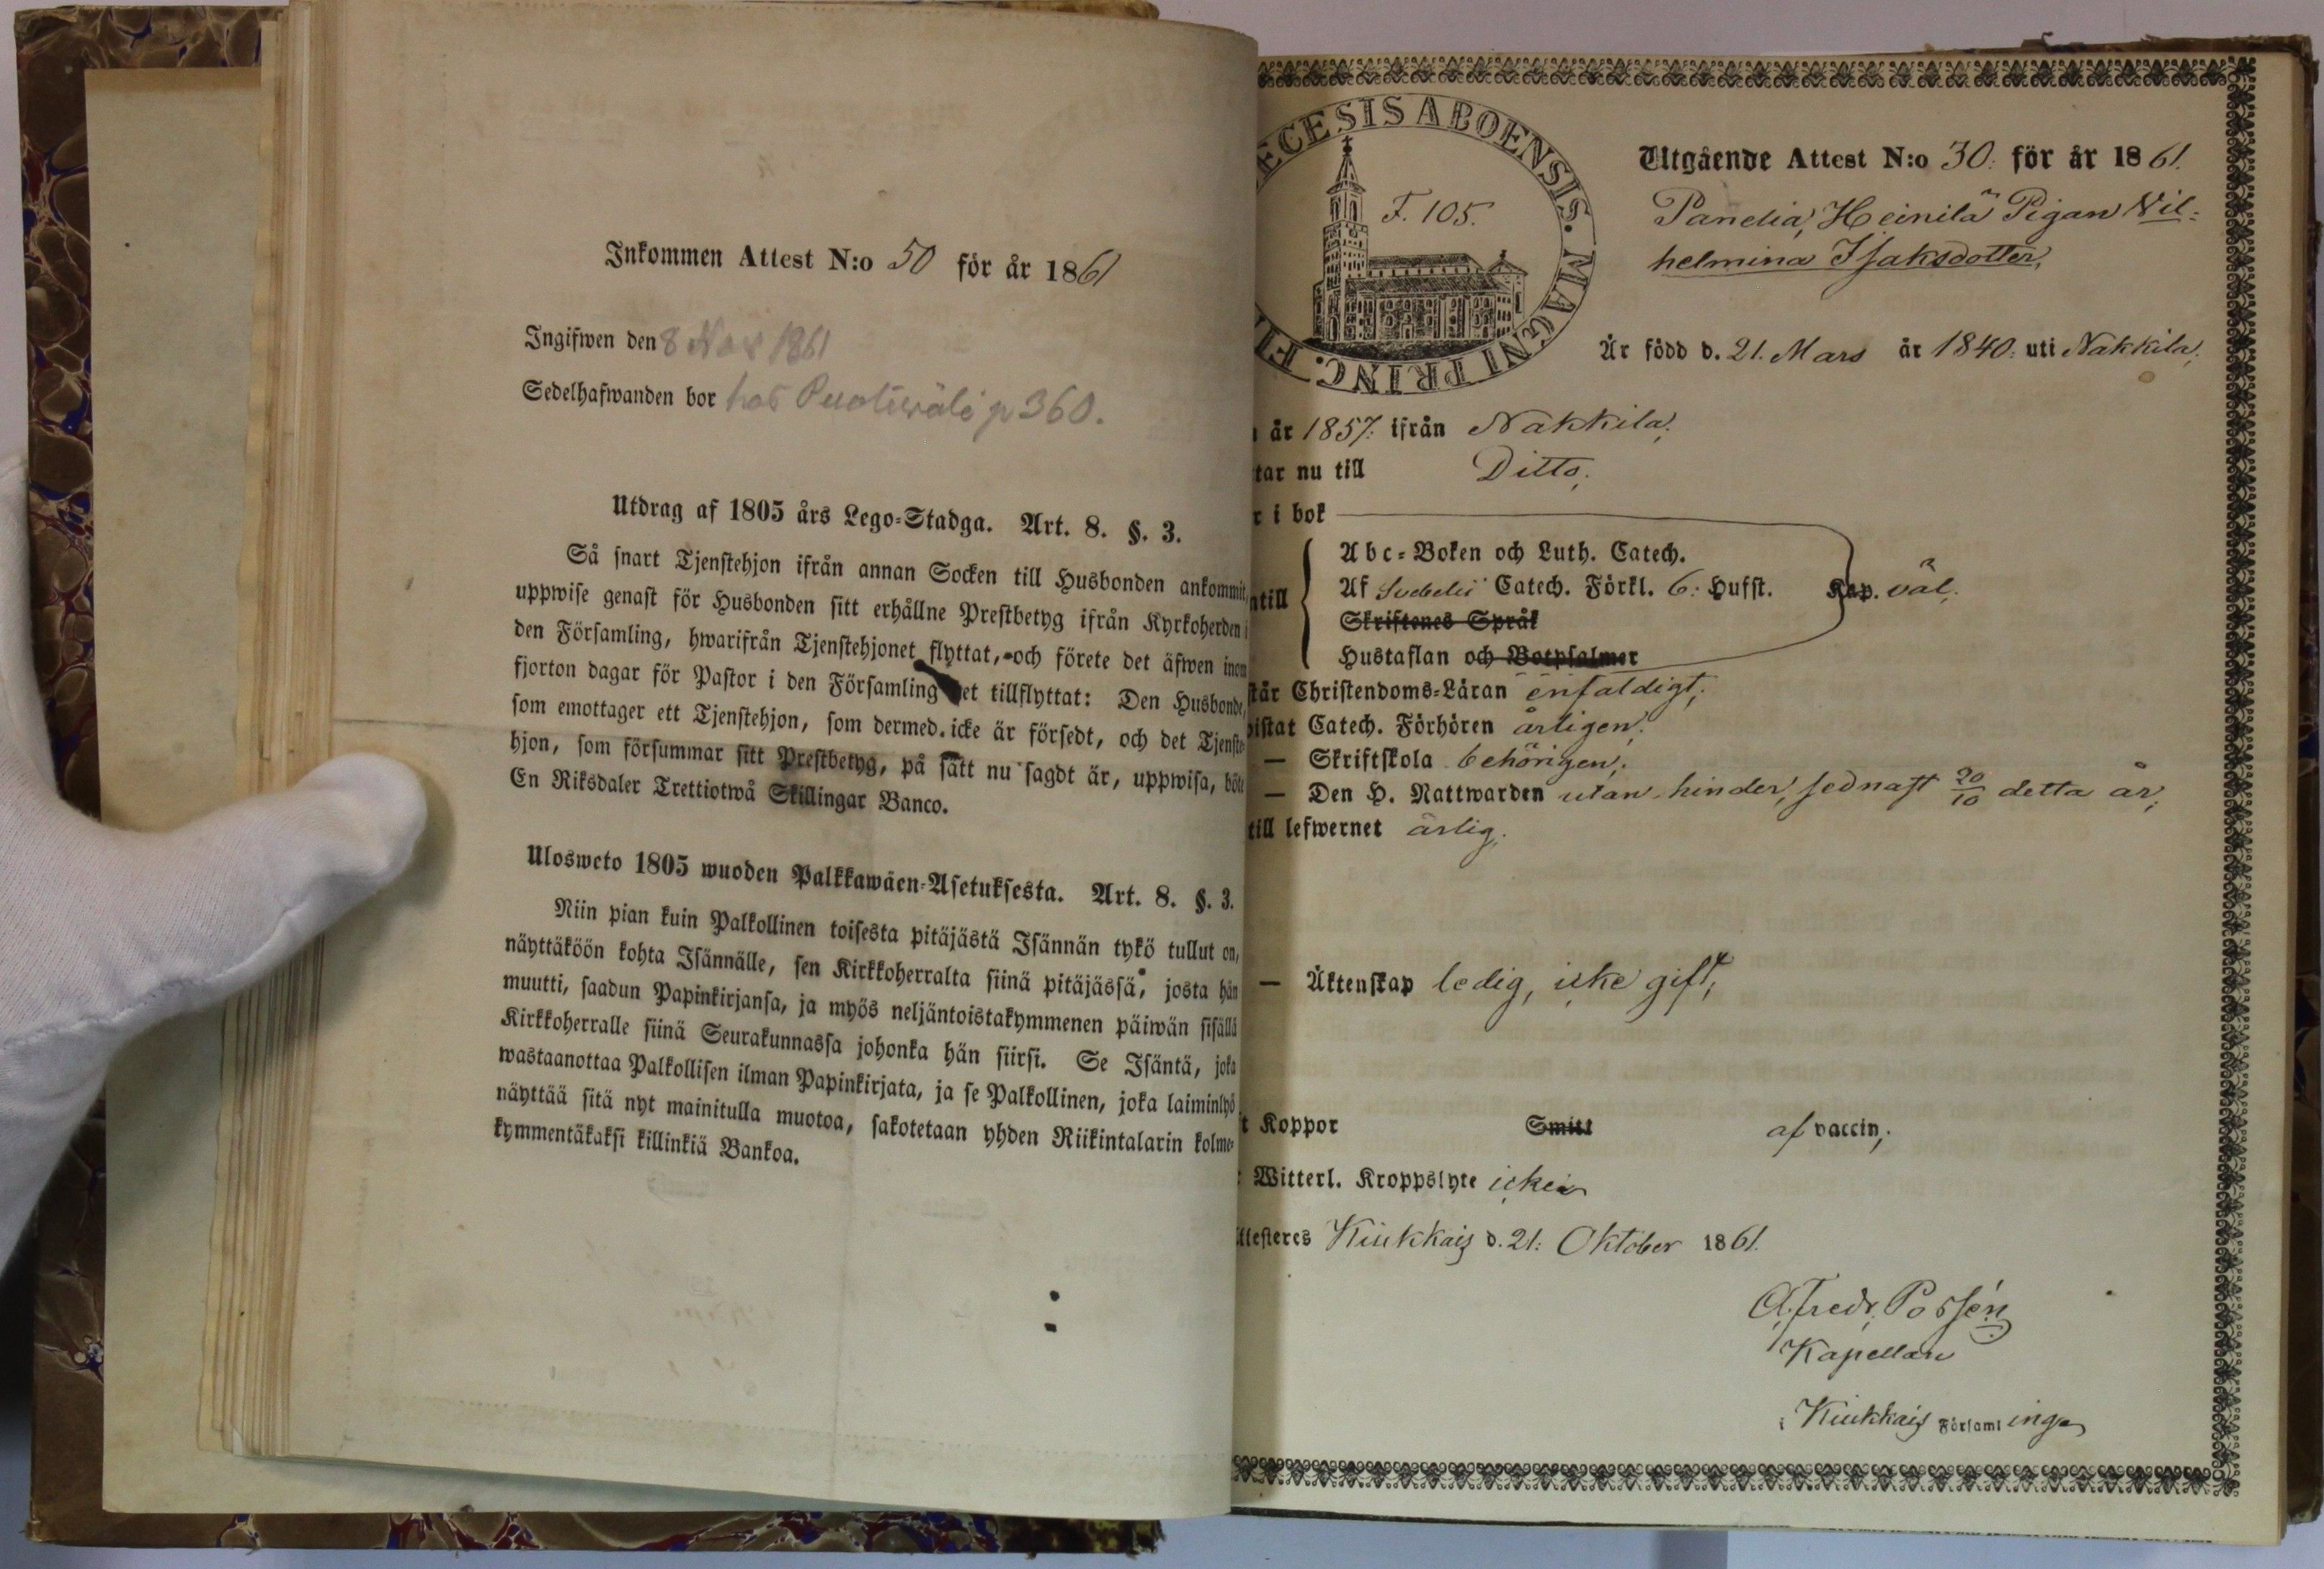 Inkommen Attest N:o 50 för år 1861
Ingifwen den 8 Nov 1861
Sedelhafwanden bor hos p 360.
Utdrag af 1805 års Lego-Stadga. Art. 8. §. 3.
Så snart Tjenstehjon ifrån annan Socken till Husbonden ankommit,
uppwise genast för Husbonden sitt erhållne Prestbetyg ifrån Kyrkoherden i
den Församling, hwarifrån Tjenstehjonet flyttat, och förete det äfwen inom
fjorton dagar för Pastor i den Församling det tillflyttat: Den Husbonde,
som emottager ett Tjenstehjon, som dermed icke är försedt, och det Tjenste-
hjon, som försummar sitt Prestbetyg, på sätt nu sagdt är, uppwisa, böte
En Riksdaler Trettiotwå Skillingar Banco.
Ulosweto 1805 wuoden Palkkawäen-Asetuksesta. Art. 8. §. 3.
Niin pian kuin Palkollinen toisesta pitäjästä Isännän tykö tullut on,
näyttäköön kohta Isännälle, sen Kirkkoherralta siinä pitäjässä, josta hän
muutti, saadun Papinkirjansa, ja myös neljäntoistakymmenen päiwän sisällä
Kirkkoherralle siinä Seurakunnassa johonka hän siirsi. Se Isäntä, joka
wastaanottaa Palkollisen ilman Papinkirjata, ja se Palkollinen, joka laiminlyö
näyttää sitä nyt mainitulla muotoa, sakotetaan yhden Riikintalarin kolme-
kymmentäkaksi killinkiä Bankoa.
ECESIS ABOENSIS. MAGNI PRINC. FI
F. 105.
Utgående Attest N:o 30. för år 1861.
Panelia, Heinilä Pigan Wil-
helmina Isaksdotter,
Är född d. 21. Mars år 1840. uti Nakkila,
år 1857. ifrån Nakkila,
tar nu till Ditto,
r i bok
Abc-Boken och Luth. Catech.
ntill Af Svebelii Catech. Förkl. 6: Hufst. Kap. väl,
Skriftenes Språk
Hustaflan och Botpsalmer
står Christendoms-Läran enfaldigt,
vistat Catech. Förhören årligen,
— Skriftskola behörigen,
— Den H. Nattwarden utan hinder, sednast 20/10 detta år,
till lefwernet ärlig.
— Äktenskap ledig, icke gift,
t Koppor Smitt af vaccin,
Witterl. Kroppslyte icke
ttesteres Kiukkais d. 21. Oktober 1861.
Alfredr. Possén
Kapellan
i Kiukkais Församlinge